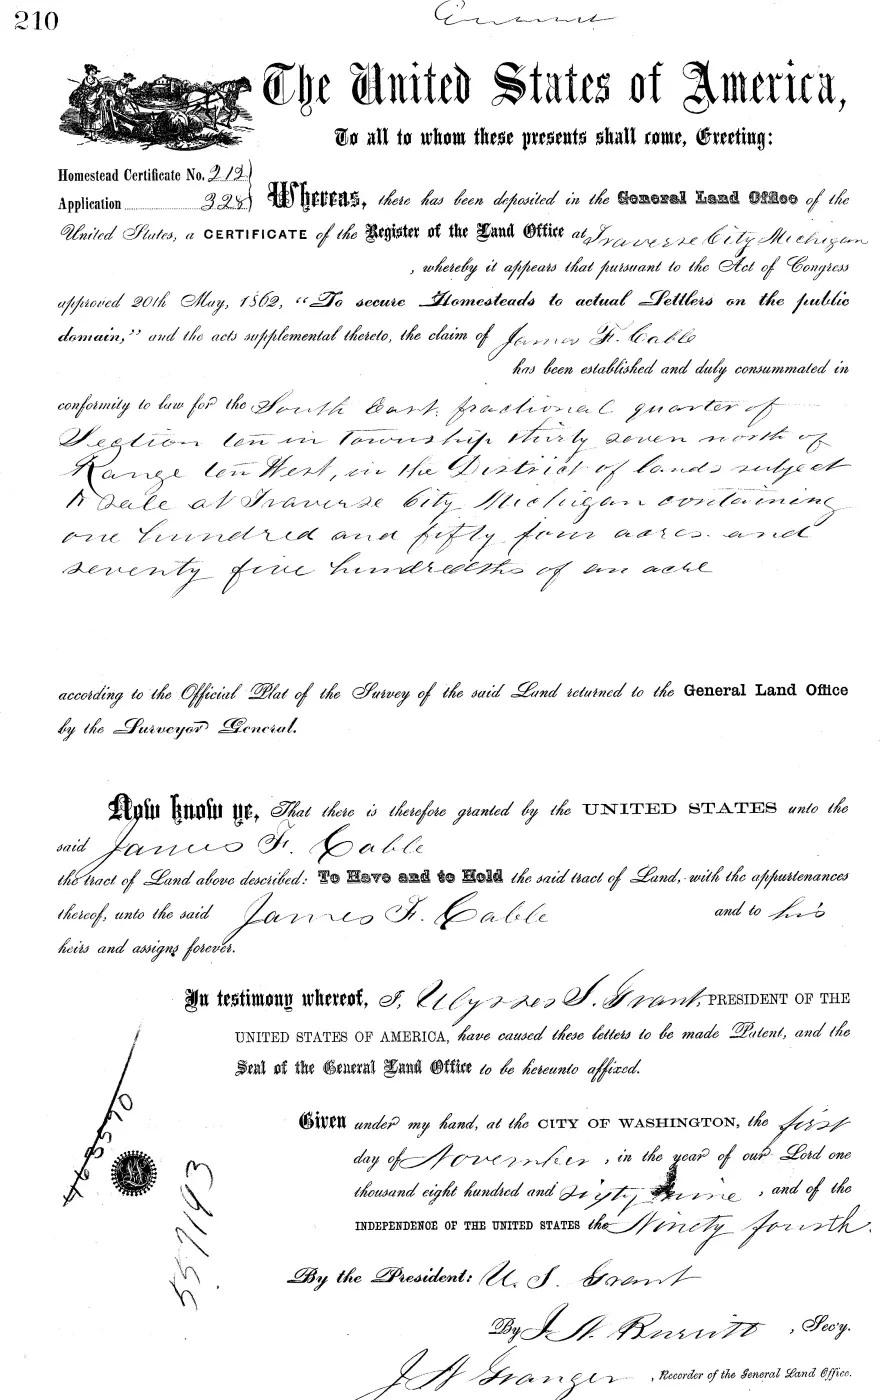 210
Emmet
The United States of America,
To all to whom these presents shall come, Greeting:
Homestead Certificate No. 212
Application 328
Whereas, there has been deposited in the General Land Office of the
United States, a CERTIFICATE of the Register of the Land Office at Traverse City Michigan
, whereby it appears that pursuant to the Act of Congress
approved 20th May, 1862, “To secure Homesteads to actual Settlers on the public
domain,” and the acts supplemental thereto, the claim of James F. Cable
has been established and duly consummated in
conformity to law for the South East fractional quarter of
Section ten in township thirty seven north of
Range ten West, in the District of lands subject
to sale at Traverse City Michigan containing
one hundred and fifty four acres and
seventy five hundredths of an acre
according to the Official Plat of the Survey of the said Land returned to the General Land Office
by the Surveyor General.
Now know ye, That there is therefore granted by the UNITED STATES unto the
said James F. Cable
the tract of Land above described: To Have and to Hold the said tract of Land, with the appurtenances
thereof, unto the said James F. Cable and to his
heirs and assigns forever.
In testimony whereof, I, Ulysses S. Grant, PRESIDENT OF THE
UNITED STATES OF AMERICA, have caused these letters to be made Patent, and the
Seal of the General Land Office to be hereunto affixed.
Given under my hand, at the CITY OF WASHINGTON, the first
day of November, in the year of our Lord one
thousand eight hundred and sixty nine, and of the
INDEPENDENCE OF THE UNITED STATES the Ninety fourth.
463570
557193
By the President: U. S. Grant
By Parritt, Sec'y.
J N Granger, Recorder of the General Land Office.